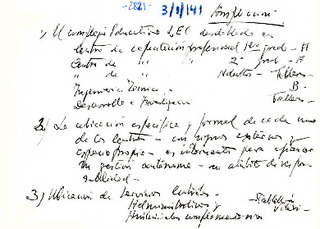 -2821- 3/1/141
1) El complejo Educativo LEC desdoblado en
centro de capacitación profesional 1er grado - A
Centro de " " 2º grado - A
" de " Adultos - Talleres
Ingeniería Técnica - B
Desarrollo e Investigación Talleres
2) La ubicación específica y formal de cada uno
de los centros - con signos externos y
espacio propio - es interesante para afianzar
su gestión autónoma - su ámbito de respon-
sabilidad -
3) Ubicación de servicios centrales
Administrativos y
complementarios